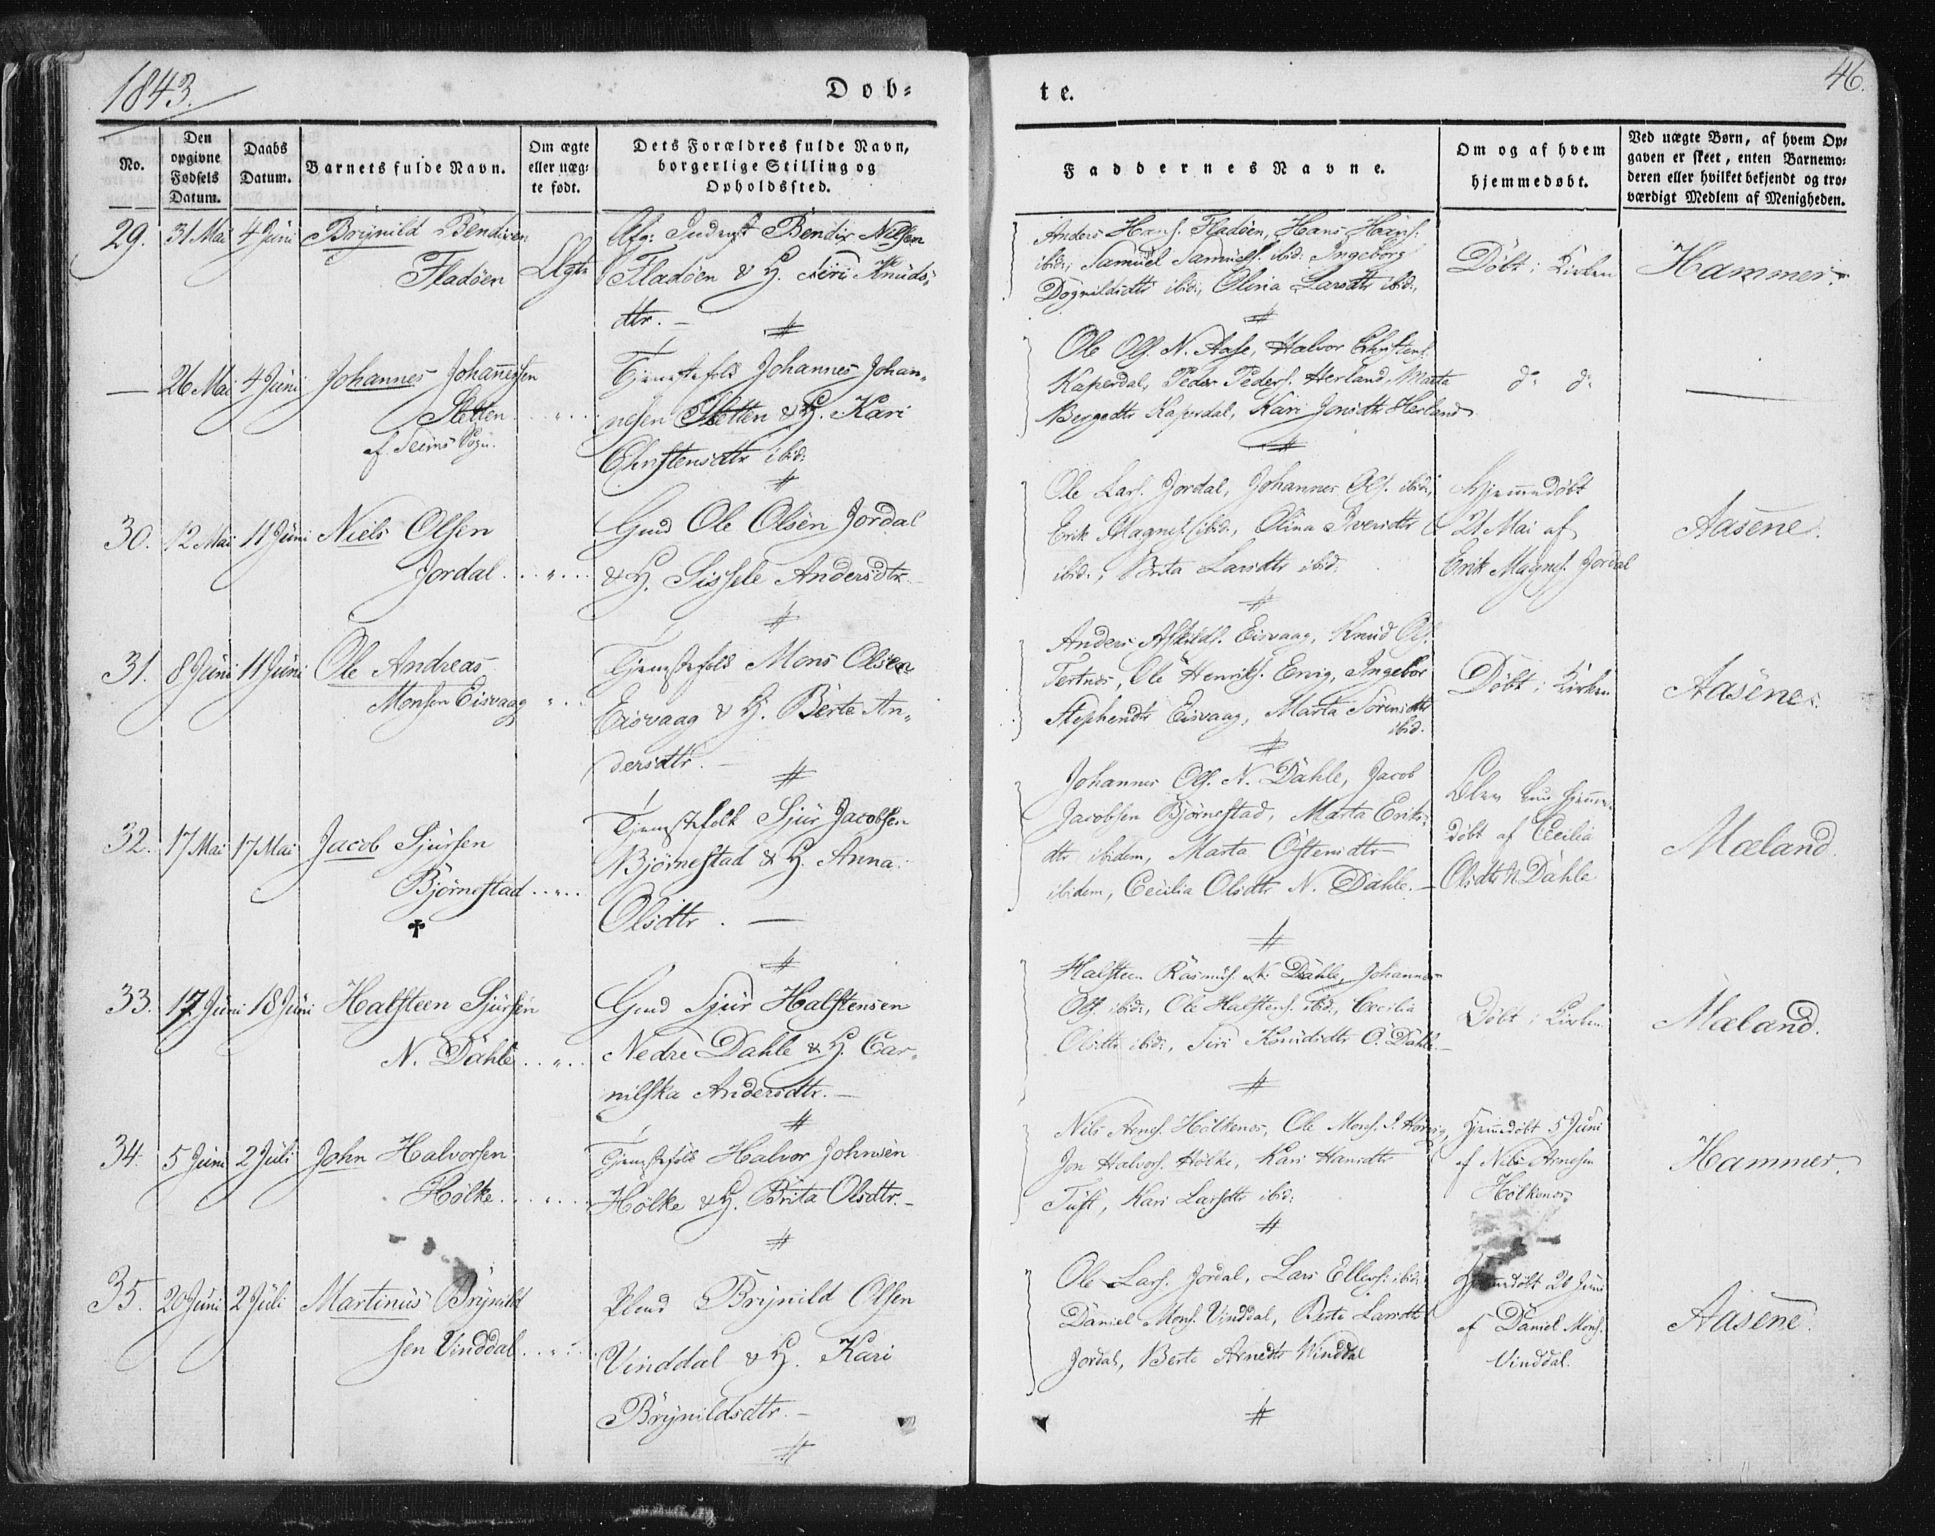 1843.
Døb-
te.
46.
No.
Den opgivne Fødsels Datum.
Daabs Datum.
Barnets fulde Navn.
Om ægte eller uægte født.
Dets Forældres fulde Navn, borgerlige Stilling og Opholdssted.
Faddernes Navne.
Om og af hvem hjemmedøbt.
Ved uægte Børn, af hvem Opgaven er skeet, enten Barnemoderen eller hvilket bekjendt og troværdigt Medlem af Menigheden.
29. 31 Mai 4 Juni Brynild Bendixen
Fladöen
Bendix Nilsen
Fladöen & H. Siri Knuds-
dtr. —
Anders Hans. Fladöen, Hans Hans.
ibid:, Samuel Samuels. ibid: Ingeborg
ibid:, Olina Larsdtr ibid:,
Døbt i Kirken
Hammer.
— 26 Mai 4 Juni Johannes Johannessen
Sletten
af Seims Sogn.
Tjenestefolk Johannes Johan-
nesen Sletten & H. Kari
Christensdtr ibid:
Ole Ols. N. Aase, Halvor Christens.
Kaperdal, Peder Peders. Herland, Marta
Kaperdal, Kari Jonsdtr Herland
do do
30. 12 Mai 11 Juni Niels Olsen
Jordal
Gmd Ole Olsen Jordal
& H. Sissele Andersdtr.
Ole Lars. Jordal, Johannes Ols. ibid:,
Erik Magnes. ibid:, Olina Iversdtr
ibid:, Brita Larsdtr ibid.
Hjemmedøbt
21 Mai af
Erik Magnes. Jordal
Aasene.
31. 8 Juni 11 Juni Ole Andreas
Monsen Eisvaag
Tjenestefolk Mons Olsen
Eisvaag & H. Berte An-
dersdtr. —
Anders Eisvaag, Knud Ols.
Tertnes, Ole Henriks. Ervig, Ingebor
Stephensdtr Eisvaag, Marta Sörensdtr
ibid.
Døbt i Kirken
Aasene.
32. 17 Mai 17 Mai Jacob Sjursen
Björnestad
†
Tjenestefolk Sjur Jacobsen
Björnestad & H. Anna
Olsdtr. —
Johannes Ols. N. Dahle, Jacob
Jacobsen Björnestad, Marta Eriks-
dtr ibidem, Marta Östensdtr
ibidem, Cecilia Olsdtr N. Dahle. —
Blev kun hjemme-
døbt af Cecilia
Olsdtr N. Dahle
Mæland.
33. 17 Juni 18 Juni Halsteen Sjursen
N. Dahle
Gmd Sjur Halstensen
Nedre Dahle & H. Cor-
nilska Andersdtr. —
Halsteen Rasmus. N. Dahle, Johannes
Ols. ibid:, Ole Halstens. ibid:, Cecilia
Olsdtr ibid:, Siri Knudsdtr Ö. Dahle —
Døbt i Kirken
Mæland.
34. 5 Juni 2 Juli John Halvorsen
Hölke
Tjenestefolk Halvor Johnsen
Hölke & H. Brita Olsdtr. —
Nils Arnes. Hölkenes, Ole Mons. Hörvig,
Jon Halvors. Hölke, Kari Hansdtr
Tuft, Kari Larsdtr ibid:
Hjemmedøbt 5 Juni
af Nils Arnesen
Hölkenes
Hammer.
35. 20 Juni 2 Juli Martinus Brynild-
sen Vinddal
Brynild Olsen
Vinddal & H. Kari
Brynildsdtr. —
Ole Lars. Jordal, Lars Ellers. ibid:
Daniel Mons. Vinddal, Berte Larsdtr
Jordal, Berte Arnedtr Vinddal
Hjemmedøbt 20 Juni
af Daniel Mons.
Vinddal.
Aasene.